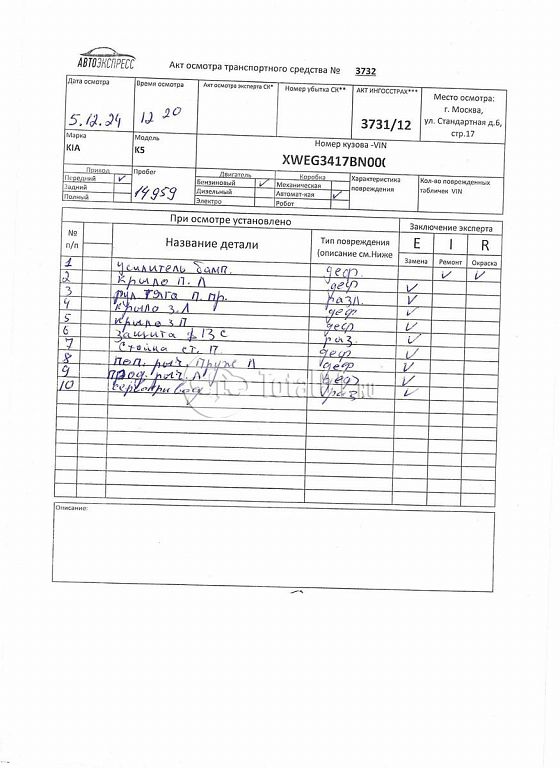 АВТОЭКСПРЕСС
Акт осмотра транспортного средства № 3732
Дата осмотра
5.12.24
Время осмотра
12 20
Акт осмотра эксперта СК*
Номер убытка СК**
АКТ ИНГОССТРАХ***
3731/12
Место осмотра:
г. Москва,
ул. Стандартная д.6,
стр.17
Марка
KIA
Модель
K5
Номер кузова -VIN
XWEG3417BN00
Привод
Передний
Задний
Полный
Пробег
14959
Двигатель
Бензиновый
Дизельный
Электро
Коробка
Механическая
Автомат-кая
Робот
Характеристика
повреждения
Кол-во поврежденных
табличек VIN
При осмотре установлено
Заключение эксперта
№
п/п
Название детали
Тип повреждения
(описание см.Ниже
E I R
Замена Ремонт Окраска
1 усилитель бамп. деф.
2 крыло П. Л деф
3 рул тяга п. пр. разл.
4 крыло З.Л деф
5 крыло З П деф
6 защита раз.
7 Стойка ст. П деф
8 поп. рыч. Пруж Л деф
9 прод. рыч. Л деф
10 сервопривод раз
Total .RU
Описание: